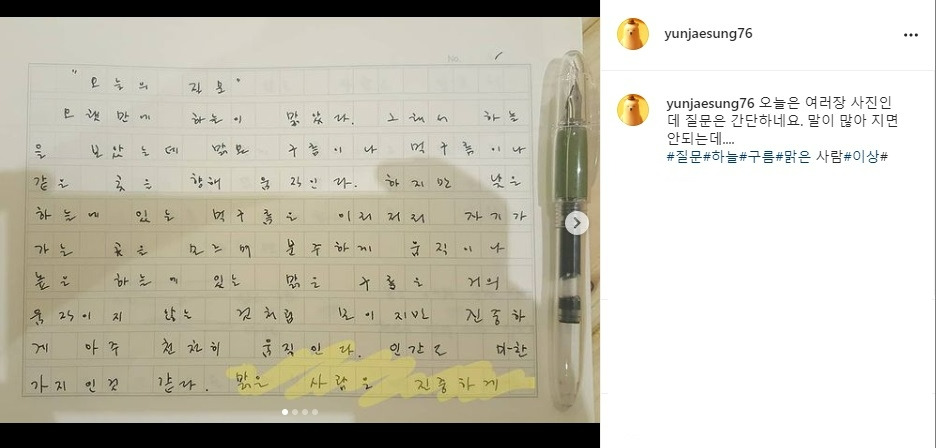 No.
"오늘의 질문"
오랜만에 하늘이 맑았다. 그래서 하늘
을 보았는데 맑은 구름이나 먹구름이나
같은 곳을 향해 움직인다. 하지만 낮은
하늘에 있는 먹구름은 이리저리 자기가
가는 곳을 모르며 분주하게 움직이나
높은 하늘에 있는 맑은 구름은 거의
움직이지 않는 것처럼 보이지만 진중하
게 아주 천천히 움직인다. 인간도 마찬
가지인것 같다. 맑은 사람은 진중하게
yunjaesung76
yunjaesung76 오늘은 여러장 사진인
데 질문은 간단하네요. 말이 많아 지면
안되는데....
#질문#하늘#구름#맑은 사람#이상#